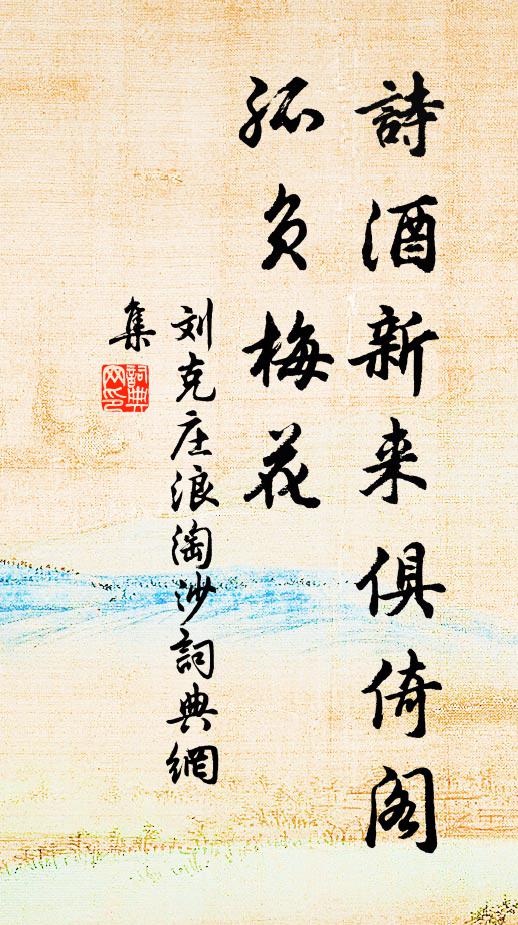 詩酒新来俱倚阁
孤负梅花
刘克庄浪淘沙詞典網
集
詞典
网印